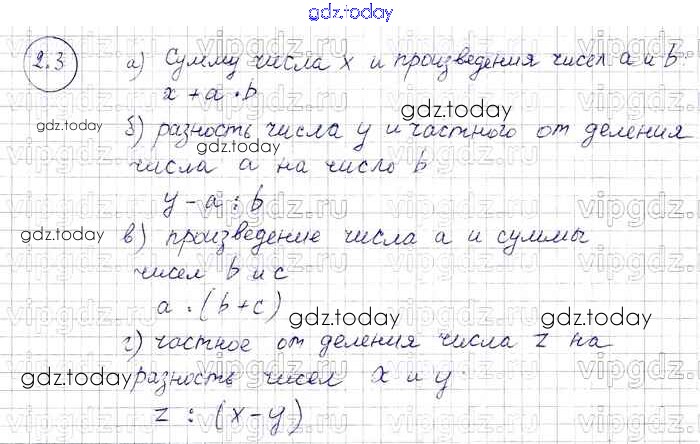 gdz.today
2.3
а) Сумму числа x и произведения чисел a и b
x + a · b
gdz.today
gdz.today
б) разность числа y и частного от деления
gdz.today
числа a на число b
y - a : b
gdz.today
в) произведение числа a и суммы
чисел b и c
a · (b + c)
gdz.today
gdz.today
г) частное от деления числа z на
gdz.today
gdz.today
разность чисел x и y
z : (x - y)
vipgdz.ru